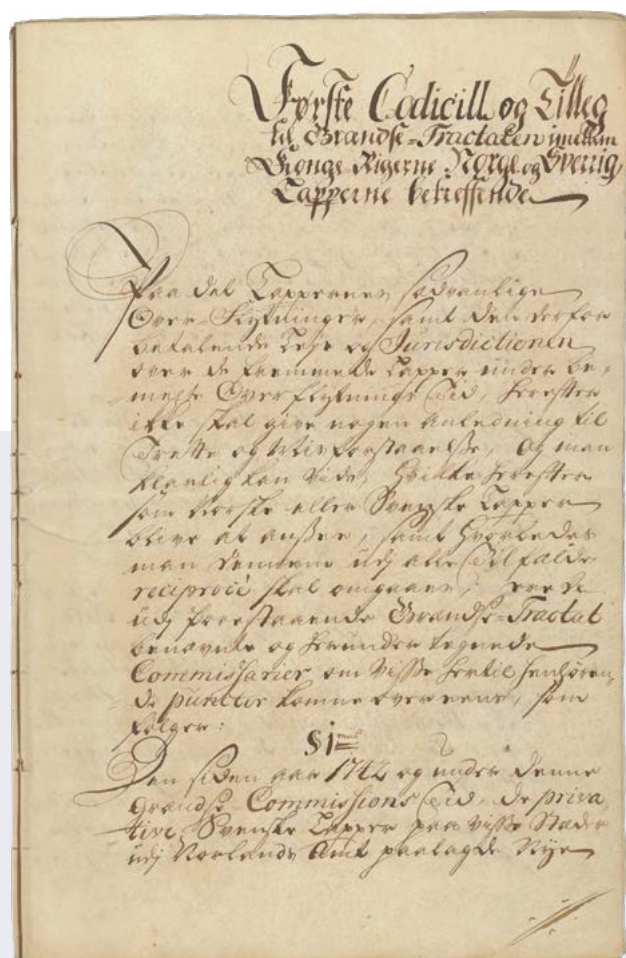 Første Codicill og Tilleg
til Grændse-Tractaten imellem
Konge Rigerne Norge og Sverrig
Lapperne betreffende
Paa det Lappernes sædvanlige
Over-Flytninger, samt den derfor
betalende Leye og Jurisdictionen
over de fremmede Lapper under be-
melte Overflytnings Tid, herefter
ikke skal give nogen anledning til
Trette og Misforstaaelse, og man
klarlig kan vide, hvilke herefter
som Norske eller Svenske Lapper
blive at ansee, samt hvorledes
man dennem udj alle Tilfælde
reciprocè skal omgaaes; ere de
udj forestaaende Grændse-Tractat
benævnte og herunder tegnede
Commissarier om visse hertil henhøren-
de puncter komne overeens, som
følger:
§ 1
Den siden aar 1742 og under denne
Grændse-Commissions Tid, de priva
tive Svenske Lapper paa visse Stæder
udj Norlands Amt paalagde Nye